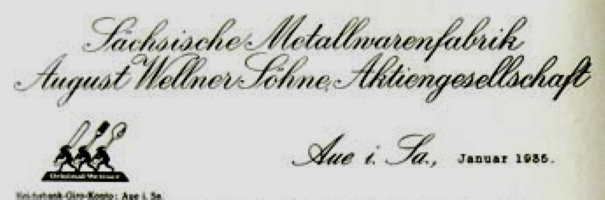 Sächsische Metallwarenfabrik
August Wellner Söhne, Aktiengesellschaft
Aue i. Sa., Januar 1935.
Original Wellner
Reichsbank-Giro-Konto: Aue i. Sa.